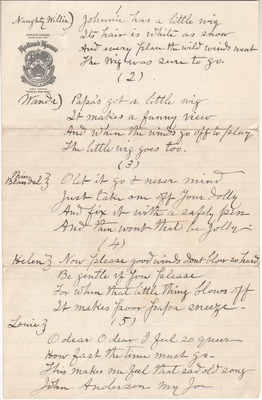 Naughty Willie) Johnnie has a little wig
Its hair is white as snow
And every place the wild winds went
The Wig was sure to go.
(2)
Wanda) Papa's got a little wig
It makes a funny view
And when the winds go off to play
The little wig goes too.
(3)
O let it go & never mind
Just take one off Your Dolly
And fix it with a safety pin
And then wont that be Jolly
(4)
Helen Now please good winds dont blow so hard
Be gentle if you please
For when that little thing blows off
It makes poor papa sneeze -
(5)
Louie O dear O dear I feel so queer
How fast the time must go -
This makes me feel that sad old song
John Anderson my Joe.